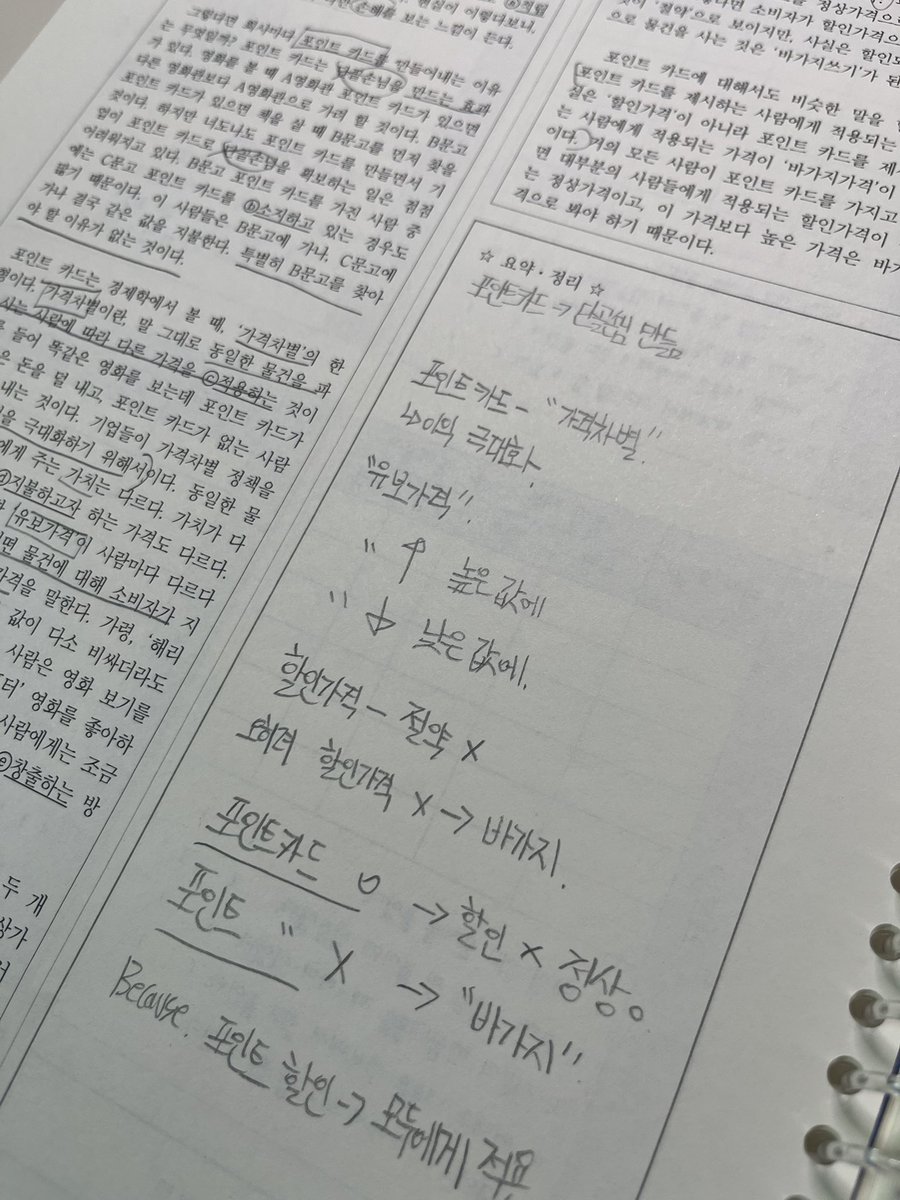 현실이 이렇다보니,
손해를 보는 느낌이 든다.
그렇다면 회사마다 포인트 카드를 만들어내는 이유
는 무엇일까? 포인트 카드는 단골손님을 만드는 효과
가 있다. 영화를 볼 때 A영화관 포인트 카드가 있으면
다른 영화관보다 A영화관으로 가려 할 것이다. B문고
포인트 카드가 있으면 책을 살 때 B문고를 먼저 찾을
것이다. 하지만 너도나도 포인트 카드를 만들면서 기
업이 포인트 카드로 단골손님을 확보하는 일은 점점
어려워지고 있다. B문고 포인트 카드를 가진 사람 중
에는 C문고 포인트 카드를 ⓑ소지하고 있는 경우도
많기 때문이다. 이 사람들은 B문고에 가나, C문고에
가나 결국 같은 값을 지불한다. 특별히 B문고를 찾아
야 할 이유가 없는 것이다.
포인트 카드는 경제학에서 볼 때, '가격차별'의 한
형이다. 가격차별이란, 말 그대로 동일한 물건을 과
사는 사람에 따라 다른 가격을 ⓒ적용하는 것이
들어 똑같은 영화를 보는데 포인트 카드가
은 돈을 덜 내고, 포인트 카드가 없는 사람
내는 것이다. 기업들이 가격차별 정책을
을 극대화하기 위해서이다. 동일한 물
에게 주는 가치는 다르다. 가치가 다
ⓓ지불하고자 하는 가격도 다르다.
유보가격'이 사람마다 다르다
면 물건에 대해 소비자가 지
가격을 말한다. 가령, '해리
값이 다소 비싸더라도
사람은 영화 보기를
터' 영화를 좋아하
사람에게는 조금
ⓔ창출하는 방
두 개
상가
정상가격으로
다면 소비자가 할인가격으
이 '절약'으로 보이지만, 사실은 할인
으로 물건을 사는 것은 '바가지쓰기'가 된
포인트 카드에 대해서도 비슷한 말을
포인트 카드를 제시하는 사람에게 적용되는
실은 '할인가격'이 아니라 포인트 카드를 제
는 사람에게 적용되는 가격이 '바가지가격'이
이다. 거의 모든 사람이 포인트 카드를 가지고
면 대부분의 사람들에게 적용되는 할인가격이
는 정상가격이고, 이 가격보다 높은 가격은 바가
격으로 봐야 하기 때문이다.
☆ 요약·정리 ☆
포인트카드 → 단골손님 만듦
포인트카드 - "가격차별"
↳ 이익 극대화.
"유보가격".
" ↑ 높은 값에
" ↓ 낮은 값에.
할인가격 - 절약 x
오히려 할인가격 x → 바가지.
포인트카드 o → 할인 x 정상o
포인트 " X → "바가지"
Because. 포인트 할인 → 모두에게 적용